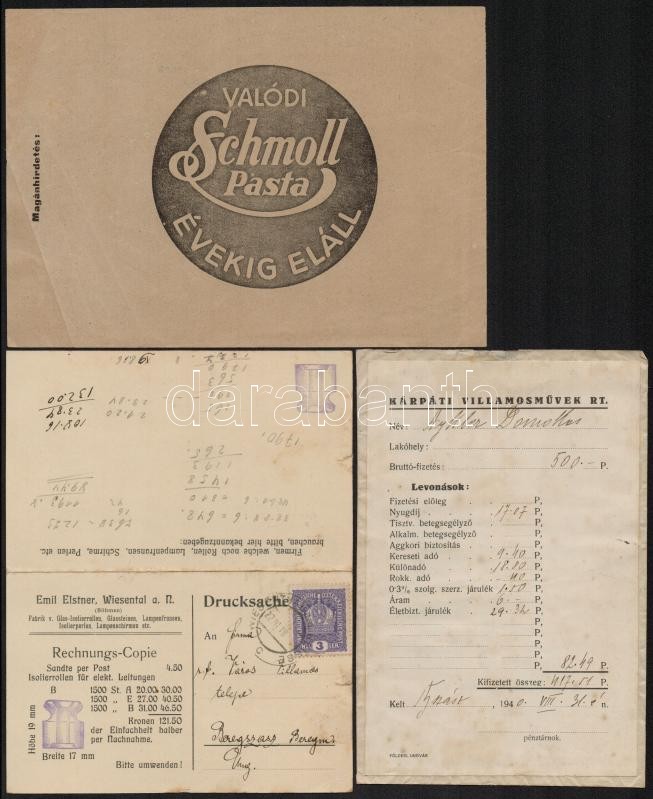 Magánhirdetés:
VALÓDI
Schmoll
Pasta
ÉVEKIG ELÁLL
darabanth
132.00
23.84
108.16
1790,
Firmen, welche noch Rollen, Lampenfransen, Schirme, Perlen etc.
brauchen, bitte hier bekanntzugeben:
Emil Elstner, Wiesental a. N.
(Böhmen)
Fabrik v. Glas-Isolierrollen, Glassteinen, Lampenfransen,
Isolierperlen, Lampenschirmen etc.
Rechnungs-Copie
Sandte per Post 4.50
Isolierrollen für elekt. Leitungen
B 1500 St. A 20.00 30.00
1500 „ E 27.00 40.50
1500 „ B 31.00 46.50
Kronen 121.50
der Einfachheit halber
per Nachnahme.
Höhe 19 mm
Breite 17 mm
Bitte umwenden!
Drucksache
3
An Firma
Város Villamos
telepe
Beregszász Beregm.
Ung.
KÁRPÁTI VILLAMOSMŰVEK RT.
Név: Domokos
Lakóhely:
Bruttó-fizetés: 500.- P.
Levonások:
Fizetési előleg P,
Nyugdíj 17.07 P,
Tisztv. betegsegélyző P,
Alkalm. betegsegélyző P,
Aggkori biztosítás P,
Kereseti adó 9.40 P,
Különadó 18.80 P,
Rokk. adó P,
0·3% szolg. szerz. járulék 1.50 P,
Áram 6.- P,
Életbizt. járulék 29.32 P,
82.49 P,
Kifizetett összeg: 417.51 P,
Kelt , 1940. VIII. 31.-én.
pénztárnok.
FÖLDESI, UNGVÁR